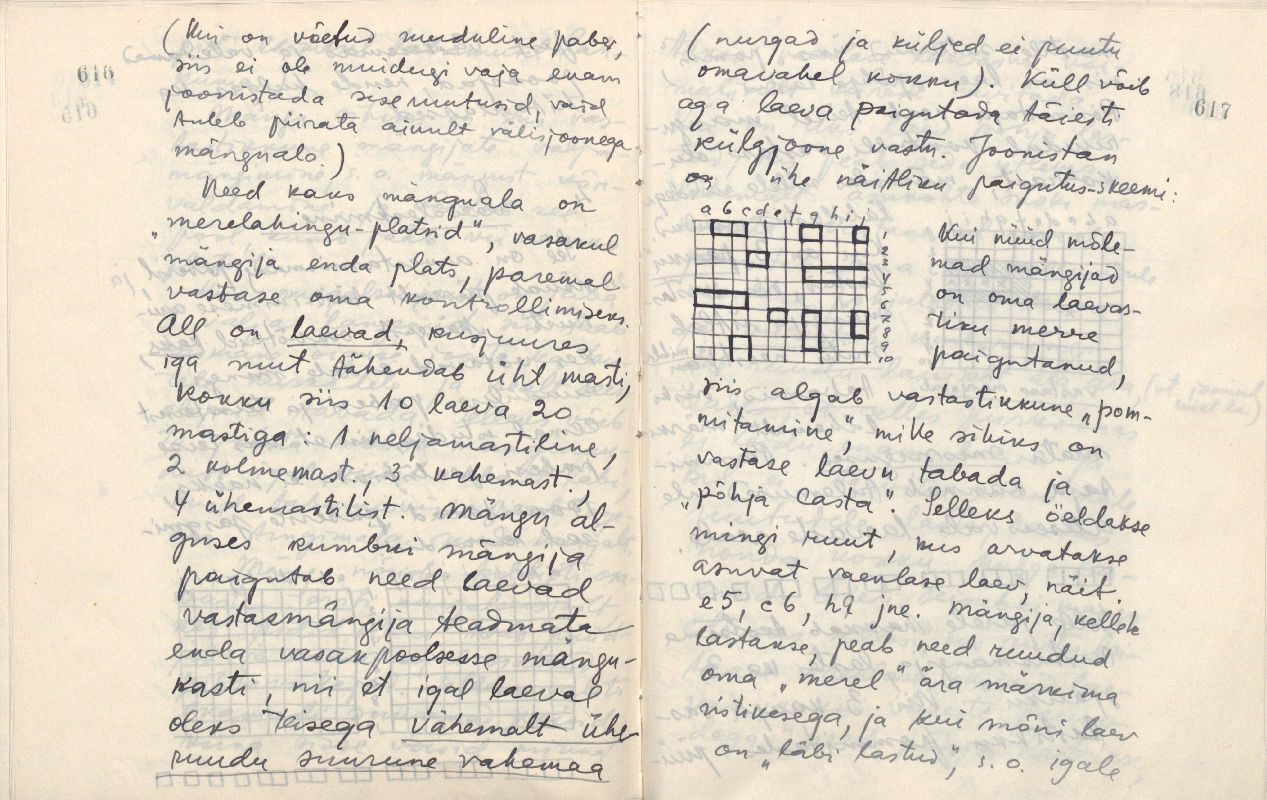 616
615
(Kui on võetud ruuduline paber,
siis ei ole muidugi vaja enam
joonistada siseruutusid, vaid
tuleb piirata ainult välisjoonega
mänguala.)
Need kaks mänguala on
„merelahingu-platsid“, vasakul
mängija enda plats, paremal
vastase oma kontrollimiseks.
All on laevad, kusjuures
iga ruut tähendab üht masti,
kokku siis 10 laeva 20
mastiga: 1 neljamastiline,
2 kolmemast., 3 kahemast.,
4 ühemastilist. Mängu al-
guses kumbki mängija
paigutab need laevad
vastasmängija teadmata
enda vasakpoolsesse mängu-
kasti, nii et igal laeval
oleks teisega vähemalt ühe
ruudu suurune vahemaa
617
(nurgad ja küljed ei puutu
omavahel kokku). Küll võib
aga laeva paigutada täiesti
külgjoone vastu. Joonistan
ühe näitliku paigutus-skeemi:
a b c d e f g h i j
1
2
3
4
5
6
7
8
9
10
Kui nüüd mõle-
mad mängijad
on oma laevas-
tiku merre
paigutanud,
siis algab vastastikkune „pom-
mitamine“, mille sihiks on
vastase laevu tabada ja
„põhja lasta“. Selleks öeldakse
mingi ruut, kus arvatakse
asuvat vaenlase laev, näit.
e5, c6, h9 jne. Mängija, kellele
lastakse, peab need ruudud
oma „merel“ ära märkima
ristikesega, ja kui mõni laev
on „läbi lastud“, s.o. igale